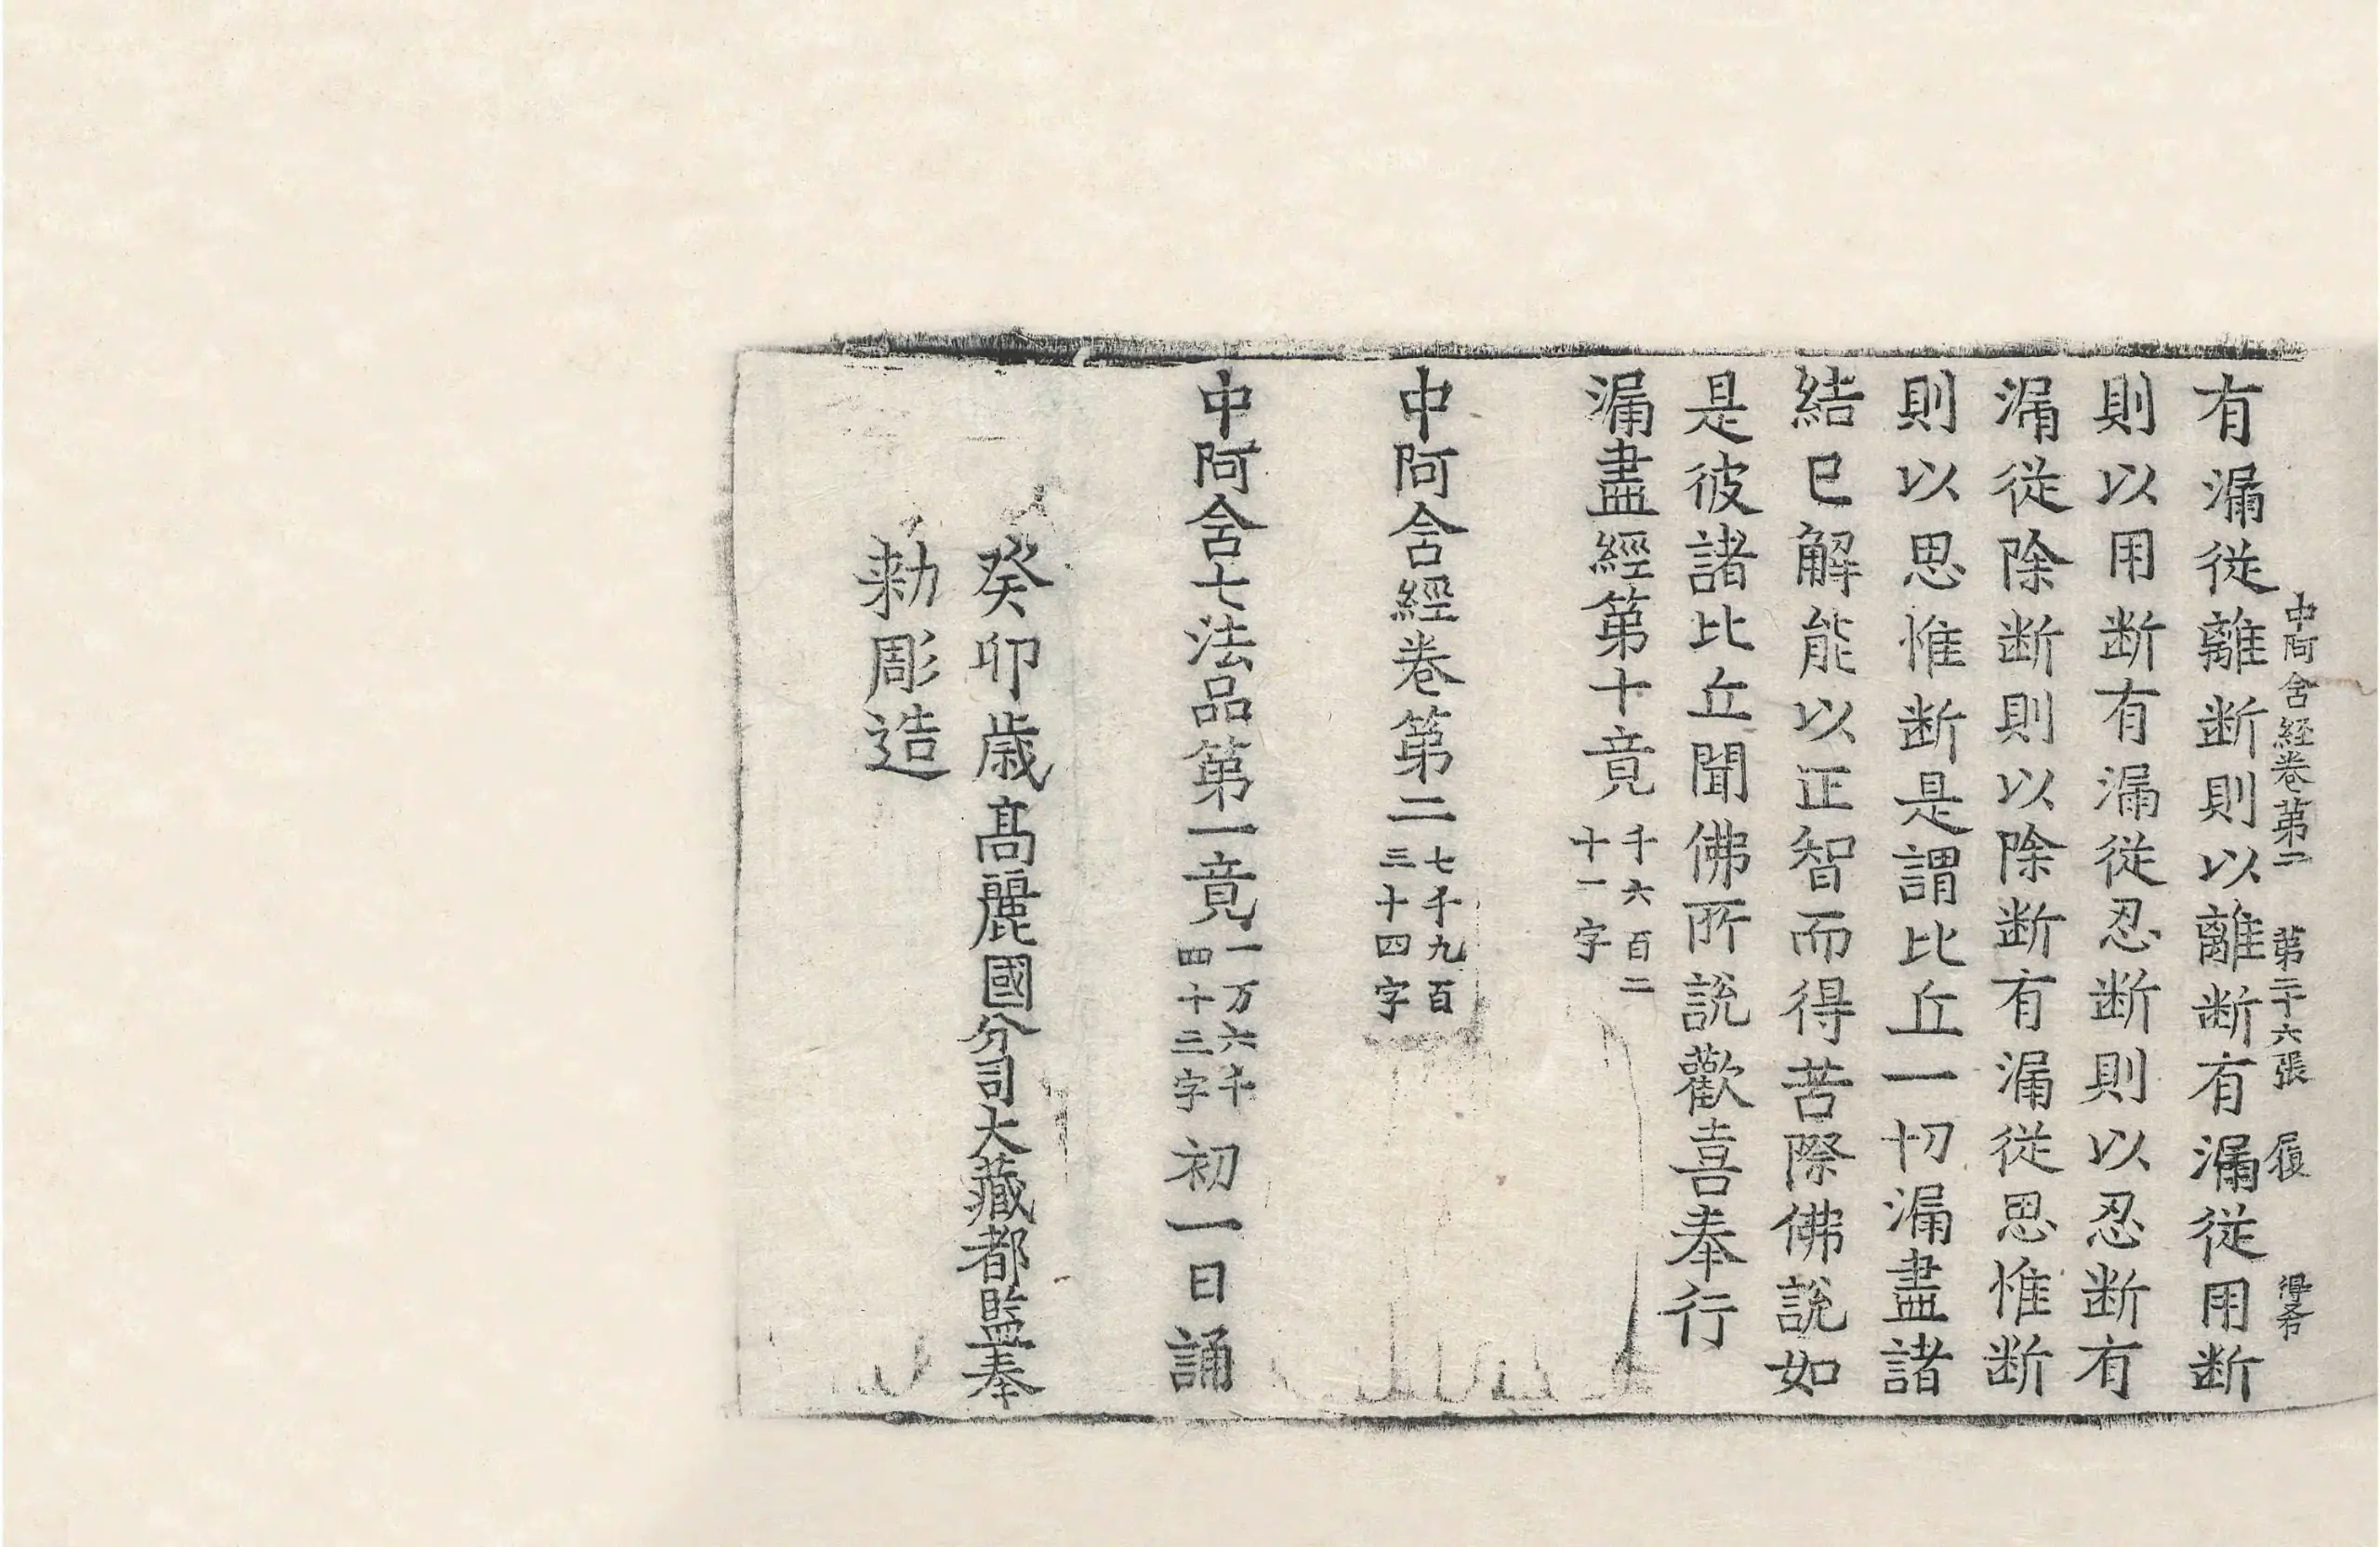 中阿含経卷第二 第二十六張 履 得禾
有漏從離断則以離断有漏從用断
則以用断有漏從忍断則以忍断有
漏從除断則以除断有漏從思惟断
則以思惟断是謂比丘一切漏盡諸
結已解能以正智而得苦際佛說如
是彼諸比丘聞佛所說歡喜奉行
漏盡經第十竟 千六百二十一字
中阿含經卷第二 七千九百三十四字
中阿含七法品第一竟 一万六千四十三字 初一日誦
癸卯歳髙麗國分司大藏都監奉
勑彫造